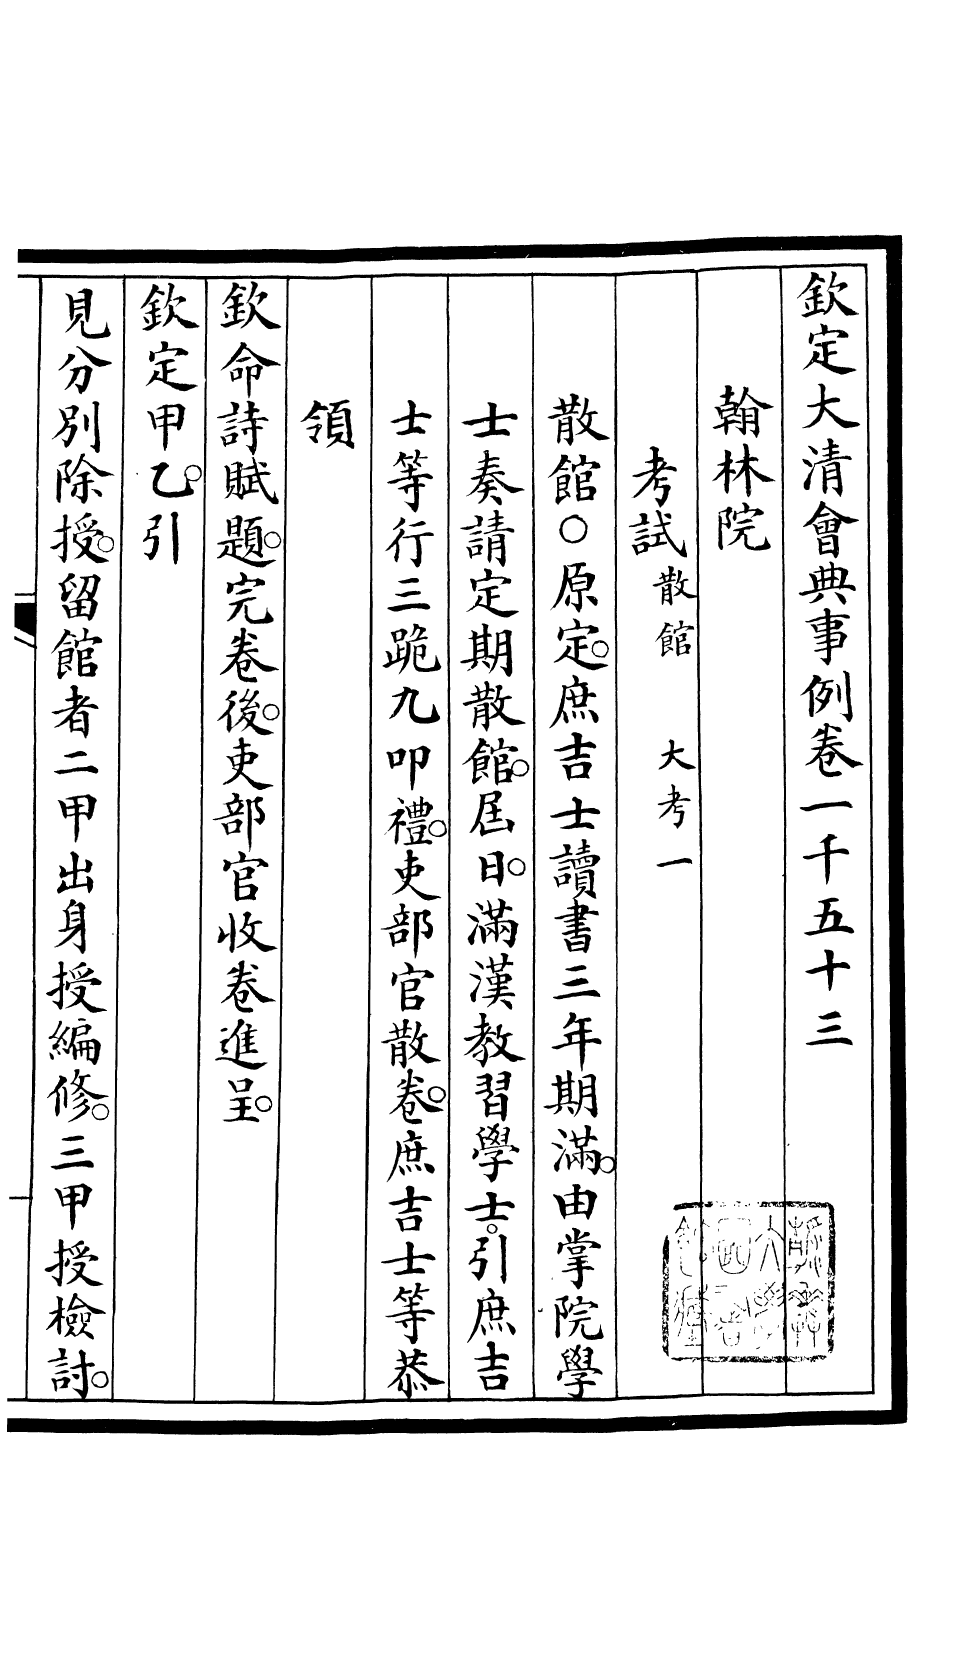 欽定大清會典事例卷一千五十三
翰林院
考試散館 大考一
散館○原定。庶吉士讀書三年期滿。由掌院學
士奏請定期散館。屆日。滿漢教習學士。引庶吉
士等行三跪九叩禮。吏部官散卷。庶吉士等恭
領
欽命詩賦題。完卷後。吏部官收卷進呈。
欽定甲乙。引
見分別除授。留館者二甲出身授編修。三甲授檢討。